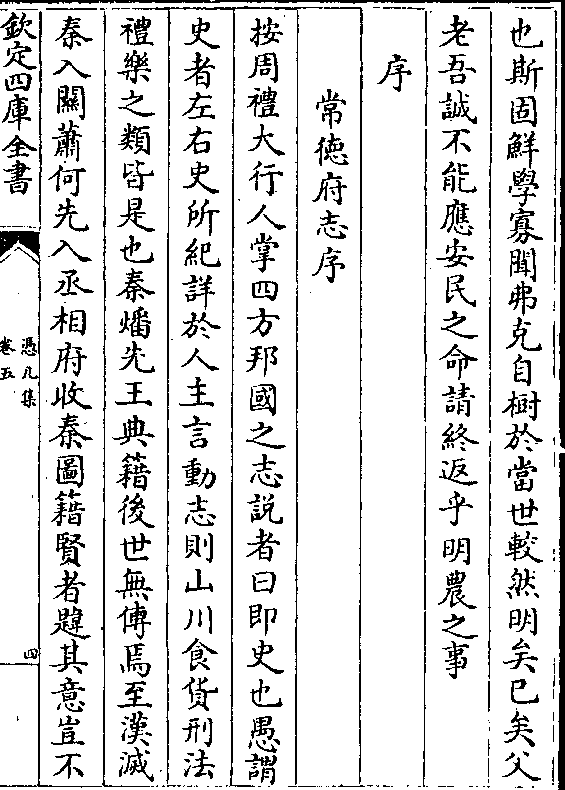 也斯固鮮學寡聞弗克自樹於當世較然明矣已矣父
老吾誠不能應安民之命請終返乎明農之事
序
常德府志序
按周禮大行人掌四方邦國之志説者曰即史也愚謂
史者左右史所紀詳於人主言動志則山川食貨刑法
禮樂之類皆是也秦燔先王典籍後世無傳焉至漢滅
秦入關蕭何先入丞相府收秦圖籍賢者韙其意豈不
欽定四庫全書
憑几集
卷五
四